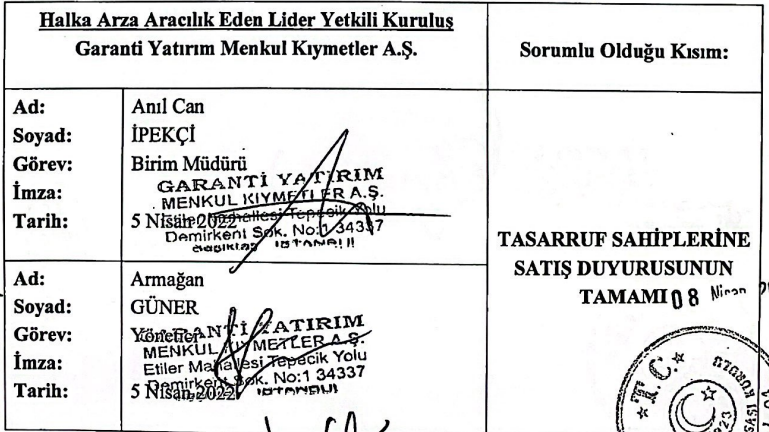 Halka Arza Aracılık Eden Lider Yetkili Kuruluş
Garanti Yatırım Menkul Kıymetler A.Ş.
Sorumlu Olduğu Kısım:
Ad: Anıl Can
Soyad: İPEKÇİ
Görev: Birim Müdürü
İmza:
Tarih: 5 Nisan 2022
GARANTİ YATIRIM
MENKUL KIYMETLER A.Ş.
Etiler Mahallesi Tepecik Yolu
Demirkent Sok. No:1 34337
Beşiktaş İSTANBUL
Ad: Armağan
Soyad: GÜNER
Görev: Yönetici
İmza:
Tarih: 5 Nisan 2022
GARANTİ YATIRIM
MENKUL KIYMETLER A.Ş.
Etiler Mahallesi Tepecik Yolu
Demirkent Sok. No:1 34337
İSTANBUL
TASARRUF SAHİPLERİNE
SATIŞ DUYURUSUNUN
TAMAMI
08 Nisan
T.C.